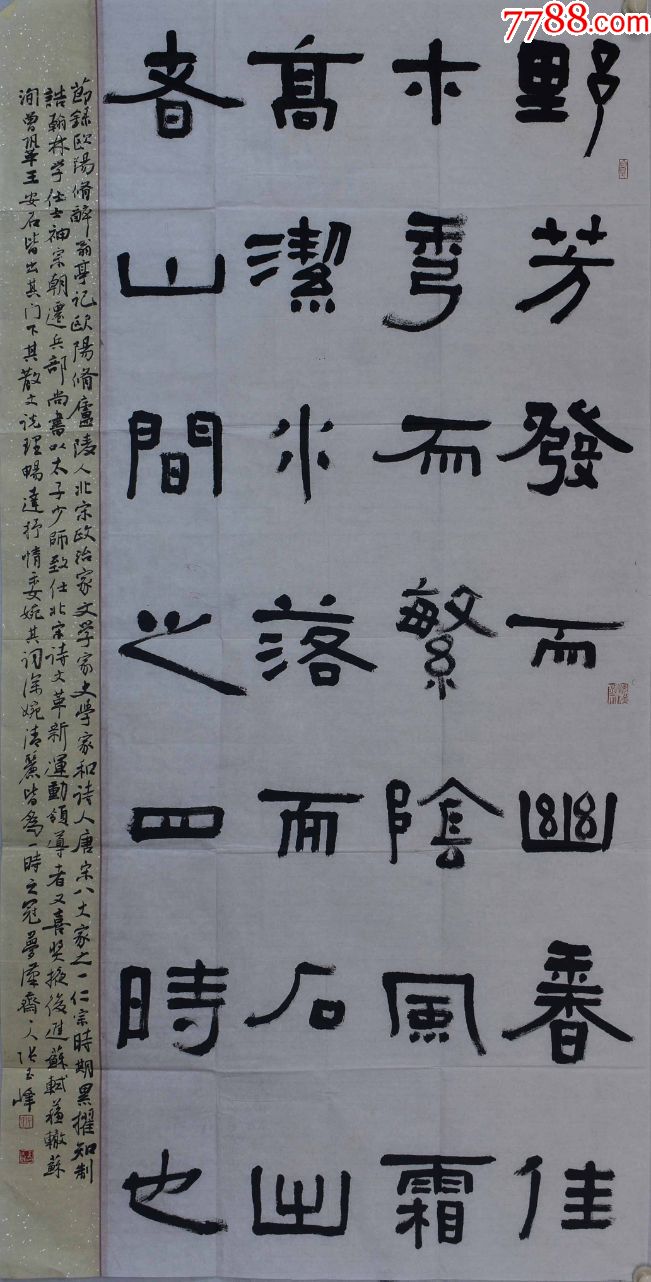 7788.com
野芳發而幽香佳
木秀而繁陰風霜
高潔水落而石出
者山間之四時也
節錄歐陽脩醉翁亭记歐陽脩廬陵人北宋政治家文学家史學家和诗人唐宋八大家之一仁宗時期累擢知制
誥翰林学仕士神宗朝遷兵部尚書以太子少師致仕北宋诗文革新運動領導者又喜奖掖後進蘇軾蘇轍蘇
洵曾巩王安石皆出其门下其散文说理暢達抒情委婉其词深婉清麗皆為一時之冠夢齋人张玉峰